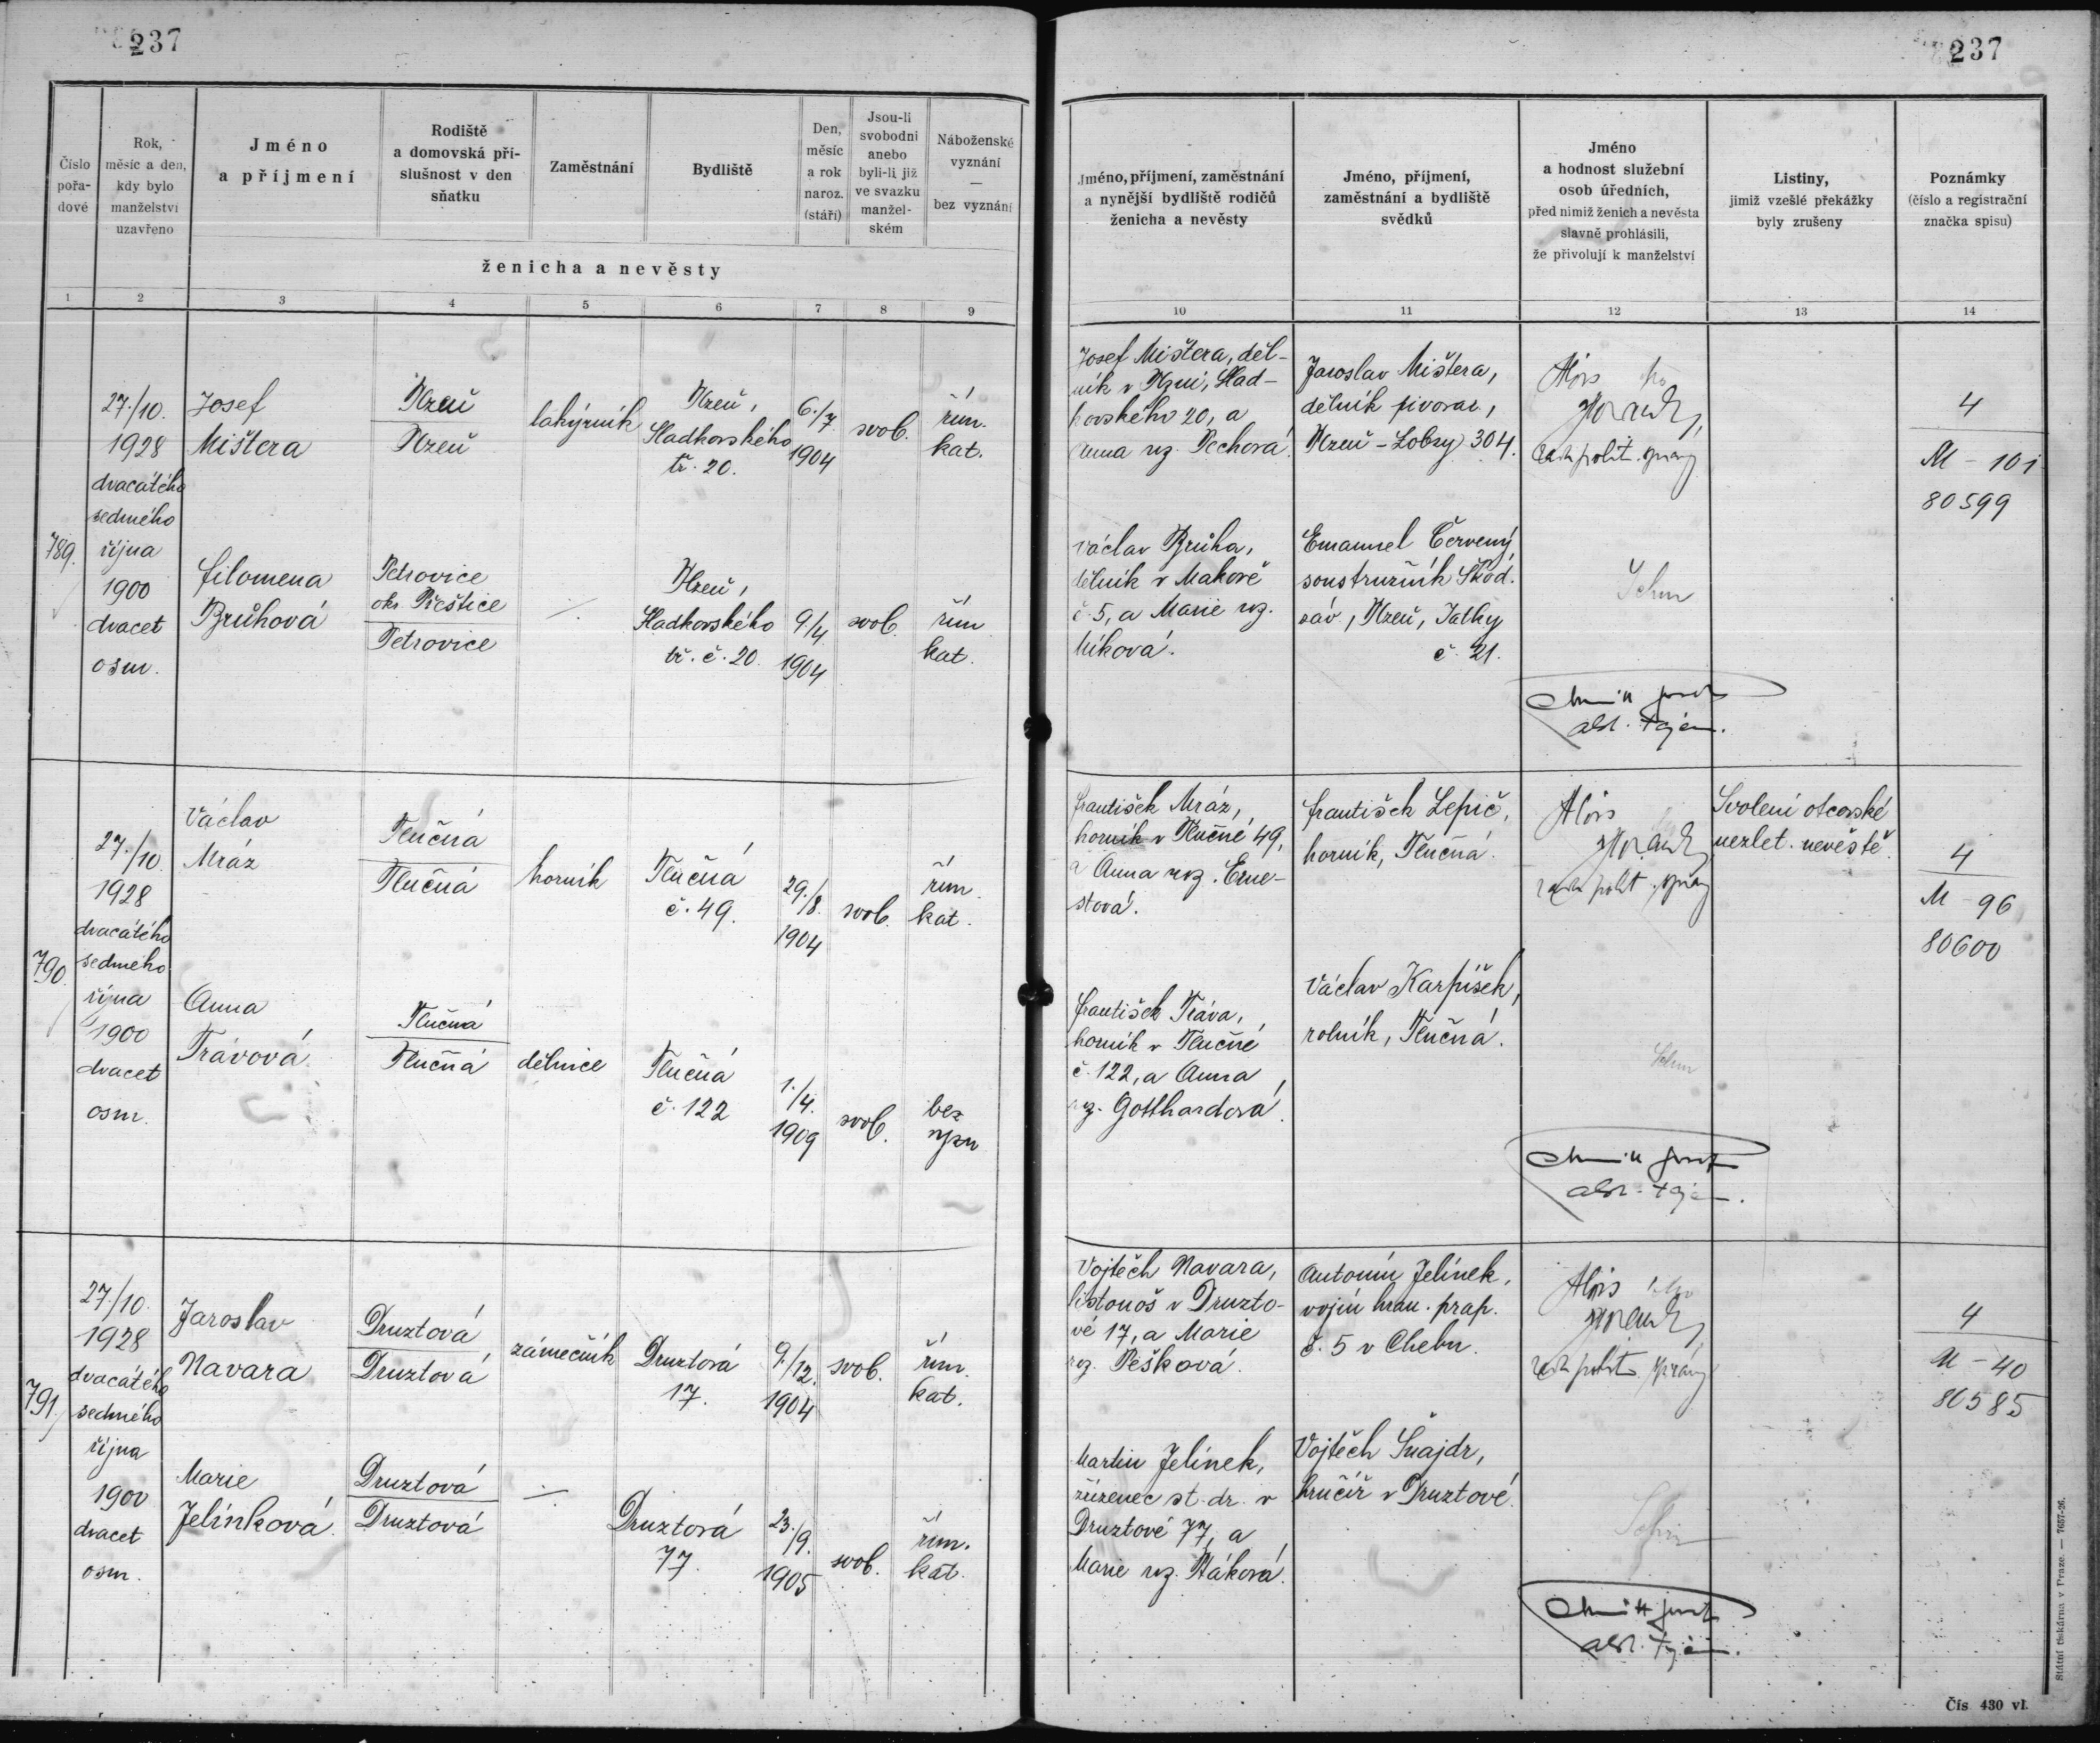 237
237
Číslo
pořa-
dové
Rok,
měsíc a den,
kdy bylo
manželství
uzavřeno
Jméno
a příjmení
Rodiště
a domovská pří-
slušnost v den
sňatku
Zaměstnání
Bydliště
Den,
měsíc
a rok
naroz.
(stáří)
Jsou-li
svobodni
anebo
byli-li již
ve svazku
manžel-
ském
Náboženské
vyznání
—
bez vyznání
ženicha a nevěsty
Jméno, příjmení, zaměstnání
a nynější bydliště rodičů
ženicha a nevěsty
Jméno, příjmení,
zaměstnání a bydliště
svědků
Jméno
a hodnost služební
osob úředních,
před nimiž ženich a nevěsta
slavně prohlásili,
že přivolují k manželství
Listiny,
jimiž vzešlé překážky
byly zrušeny
Poznámky
(číslo a registrační
značka spisu)
1 2 3 4 5 6 7 8 9 10 11 12 13 14
789.
27./10.
1928
dvacátého
sedmého
října
1900
dvacet
osm.
Josef
Mištera
Plzeň
Plzeň
lakýrník
Plzeň,
Sladkovského
tř. 20.
6./7.
1904
svob.
řím.
kat.
Josef Mištera, děl-
ník v Plzni, Slad-
kovského 20, a
Anna roz. Pechová.
Jaroslav Mištera,
dělník pivovar.,
Plzeň - Lobzy 304.
Alois
rada polit. správy
4
M - 101
80599
Filomena
Brůhová
Petrovice
okr. Přeštice
Petrovice
Plzeň,
Sladkovského
tř. č. 20.
9/4.
1904
svob.
řím
kat.
Václav Brůha,
dělník v Makově
č. 5, a Marie roz.
Míková.
Emanuel Červený,
soustružník Škod.
záv., Plzeň, Jatky
č. 21.
tajem.
790.
27./10.
1928
dvacátého
sedmého
října
1900
dvacet
osm.
Václav
Mráz
Tlučná
Tlučná
horník
Tlučná
č. 49.
29./8.
1904
svob.
řím
kat.
František Mráz,
horník v Tlučné 49,
a Anna roz. Erne-
stová.
František Lepič,
horník, Tlučná.
Alois
rada polit. správy
Svolení otcovské
nezlet. nevěstě.
4
M - 96
80600
Anna
Trávová
Tlučná
Tlučná
dělnice
Tlučná
č. 122
1./4.
1909
svob.
bez
vyzn
František Tráva,
horník v Tlučné
č. 122, a Anna
roz. Gotthardová.
Václav Karpíšek,
rolník, Tlučná.
tajem.
791.
27./10.
1928
dvacátého
sedmého
října
1900
dvacet
osm.
Jaroslav
Navara
Druztová
Druztová
zámečník
Druztová
17.
9./12.
1904
svob.
řím.
kat.
Vojtěch Navara,
listonoš v Druzto-
vé 17, a Marie
roz. Pešková.
Antonín Jelínek,
vojín hran. prap.
č. 5 v Chebu.
Alois
rada polit. správy
4
M - 40
80585
Marie
Jelínková
Druztová
Druztová
Druztová
77.
23./9.
1905
svob.
řím.
kat.
Martin Jelínek,
zřízenec st. dr. v
Druztové 77, a
Marie roz. Ptáková.
Vojtěch Šnajdr,
hrnčíř v Druztové.
tajem.
Státní tiskárna v Praze. — 7657-26.
Čís 430 vl.